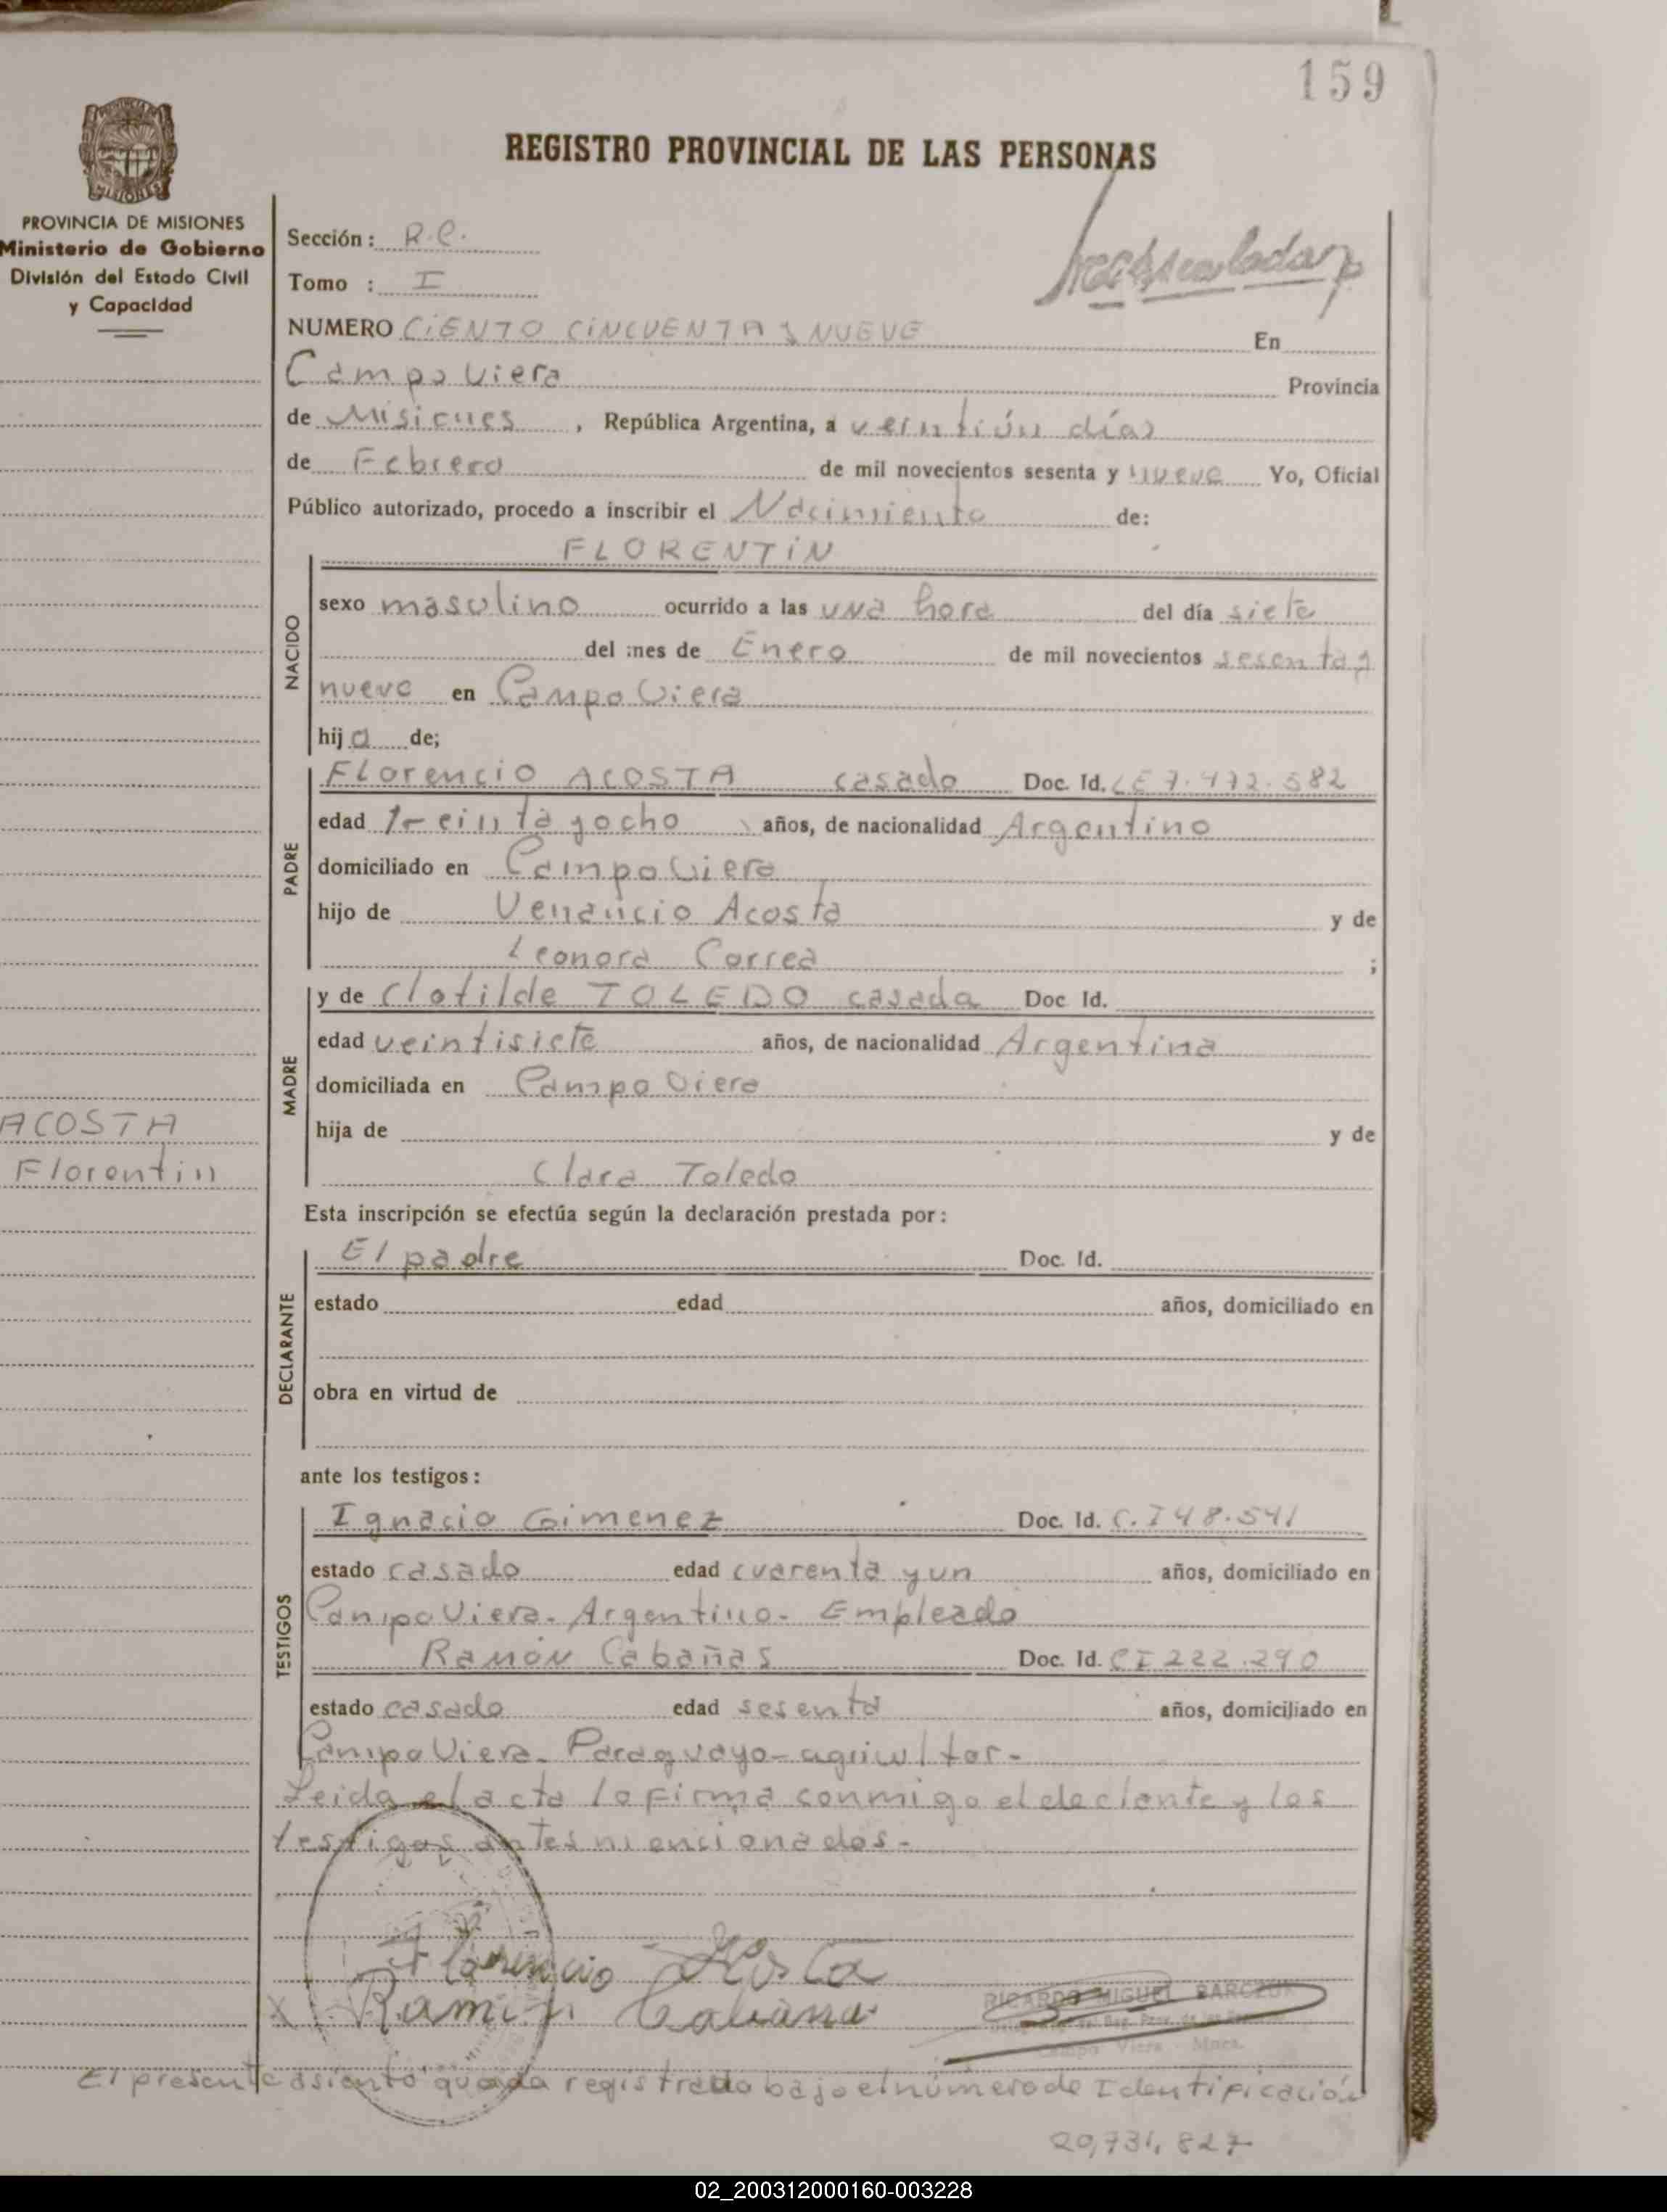 159
REGISTRO PROVINCIAL DE LAS PERSONAS
PROVINCIA DE MISIONES
Ministerio de Gobierno
División del Estado Civil
y Capacidad
Sección: R.C.
Tomo : I
NUMERO CIENTO CINCUENTA y NUEVE En
Campo Viera Provincia
de Misiones, República Argentina, a veintiún días
de Febrero de mil novecientos sesenta y nueve Yo, Oficial
Público autorizado, procedo a inscribir el Nacimiento de:
FLORENTIN
NACIDO
sexo masculino ocurrido a las una hora del día siete
del mes de Enero de mil novecientos sesenta y
nueve en Campo Viera
hijo de;
PADRE
Florencio ACOSTA casado Doc. Id. LE 7.472.582
edad Treinta y ocho años, de nacionalidad Argentino
domiciliado en Campo Viera
hijo de Venancio Acosta y de
Leonora Correa ;
MADRE
y de Clotilde TOLEDO casada Doc Id.
edad veintisiete años, de nacionalidad Argentina
domiciliada en Campo Viera
hija de y de
Clara Toledo
ACOSTA
Florentin
Esta inscripción se efectúa según la declaración prestada por:
DECLARANTE
El padre Doc. Id.
estado edad años, domiciliado en
obra en virtud de
ante los testigos:
TESTIGOS
Ignacio Gimenez Doc. Id. C.I 48.541
estado casado edad cuarenta y un años, domiciliado en
Campo Viera. Argentino. Empleado
Ramón Cabañas Doc. Id. CI 222.290
estado casado edad sesenta años, domiciliado en
Campo Viera. Paraguayo - agricultor.
Leida el acta la firma conmigo el declante y los
testigos antes mencionados.
Florencio Acosta
Ramón Cabañas
RICARDO MIGUEL BARCZUK
Campo Viera Mnes.
El presente asiento queda registrado bajo el número de Identificación
20,731,827
02_200312000160-003228